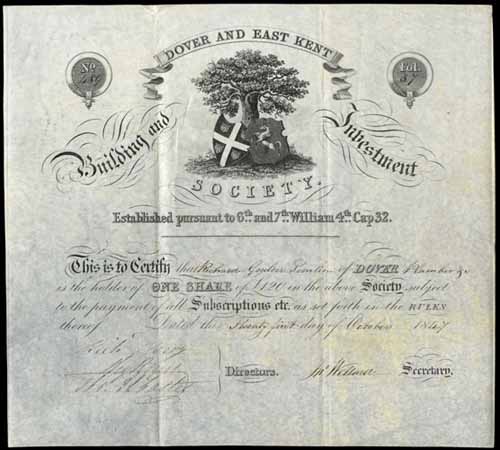 DOVER AND EAST KENT
No.
Fol.
Building and Investment
SOCIETY.
Established pursuant to 6th. and 7th. William 4th. Cap 32.
This is to Certify that Richard of DOVER Plumber &c
is the holder of ONE SHARE of £120 in the above Society subject
to the payment of all Subscriptions etc. as set forth in the RULES
thereof Dated this Twenty first day of October 1847
Directors. Secretary.